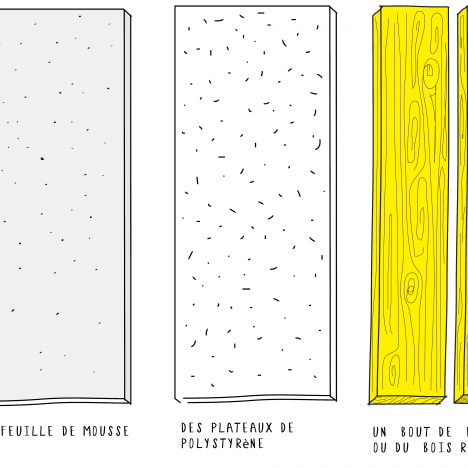 FEUILLE DE MOUSSE
DES PLATEAUX DE
POLYSTYRèNE
UN BOUT DE
OU DU BOIS